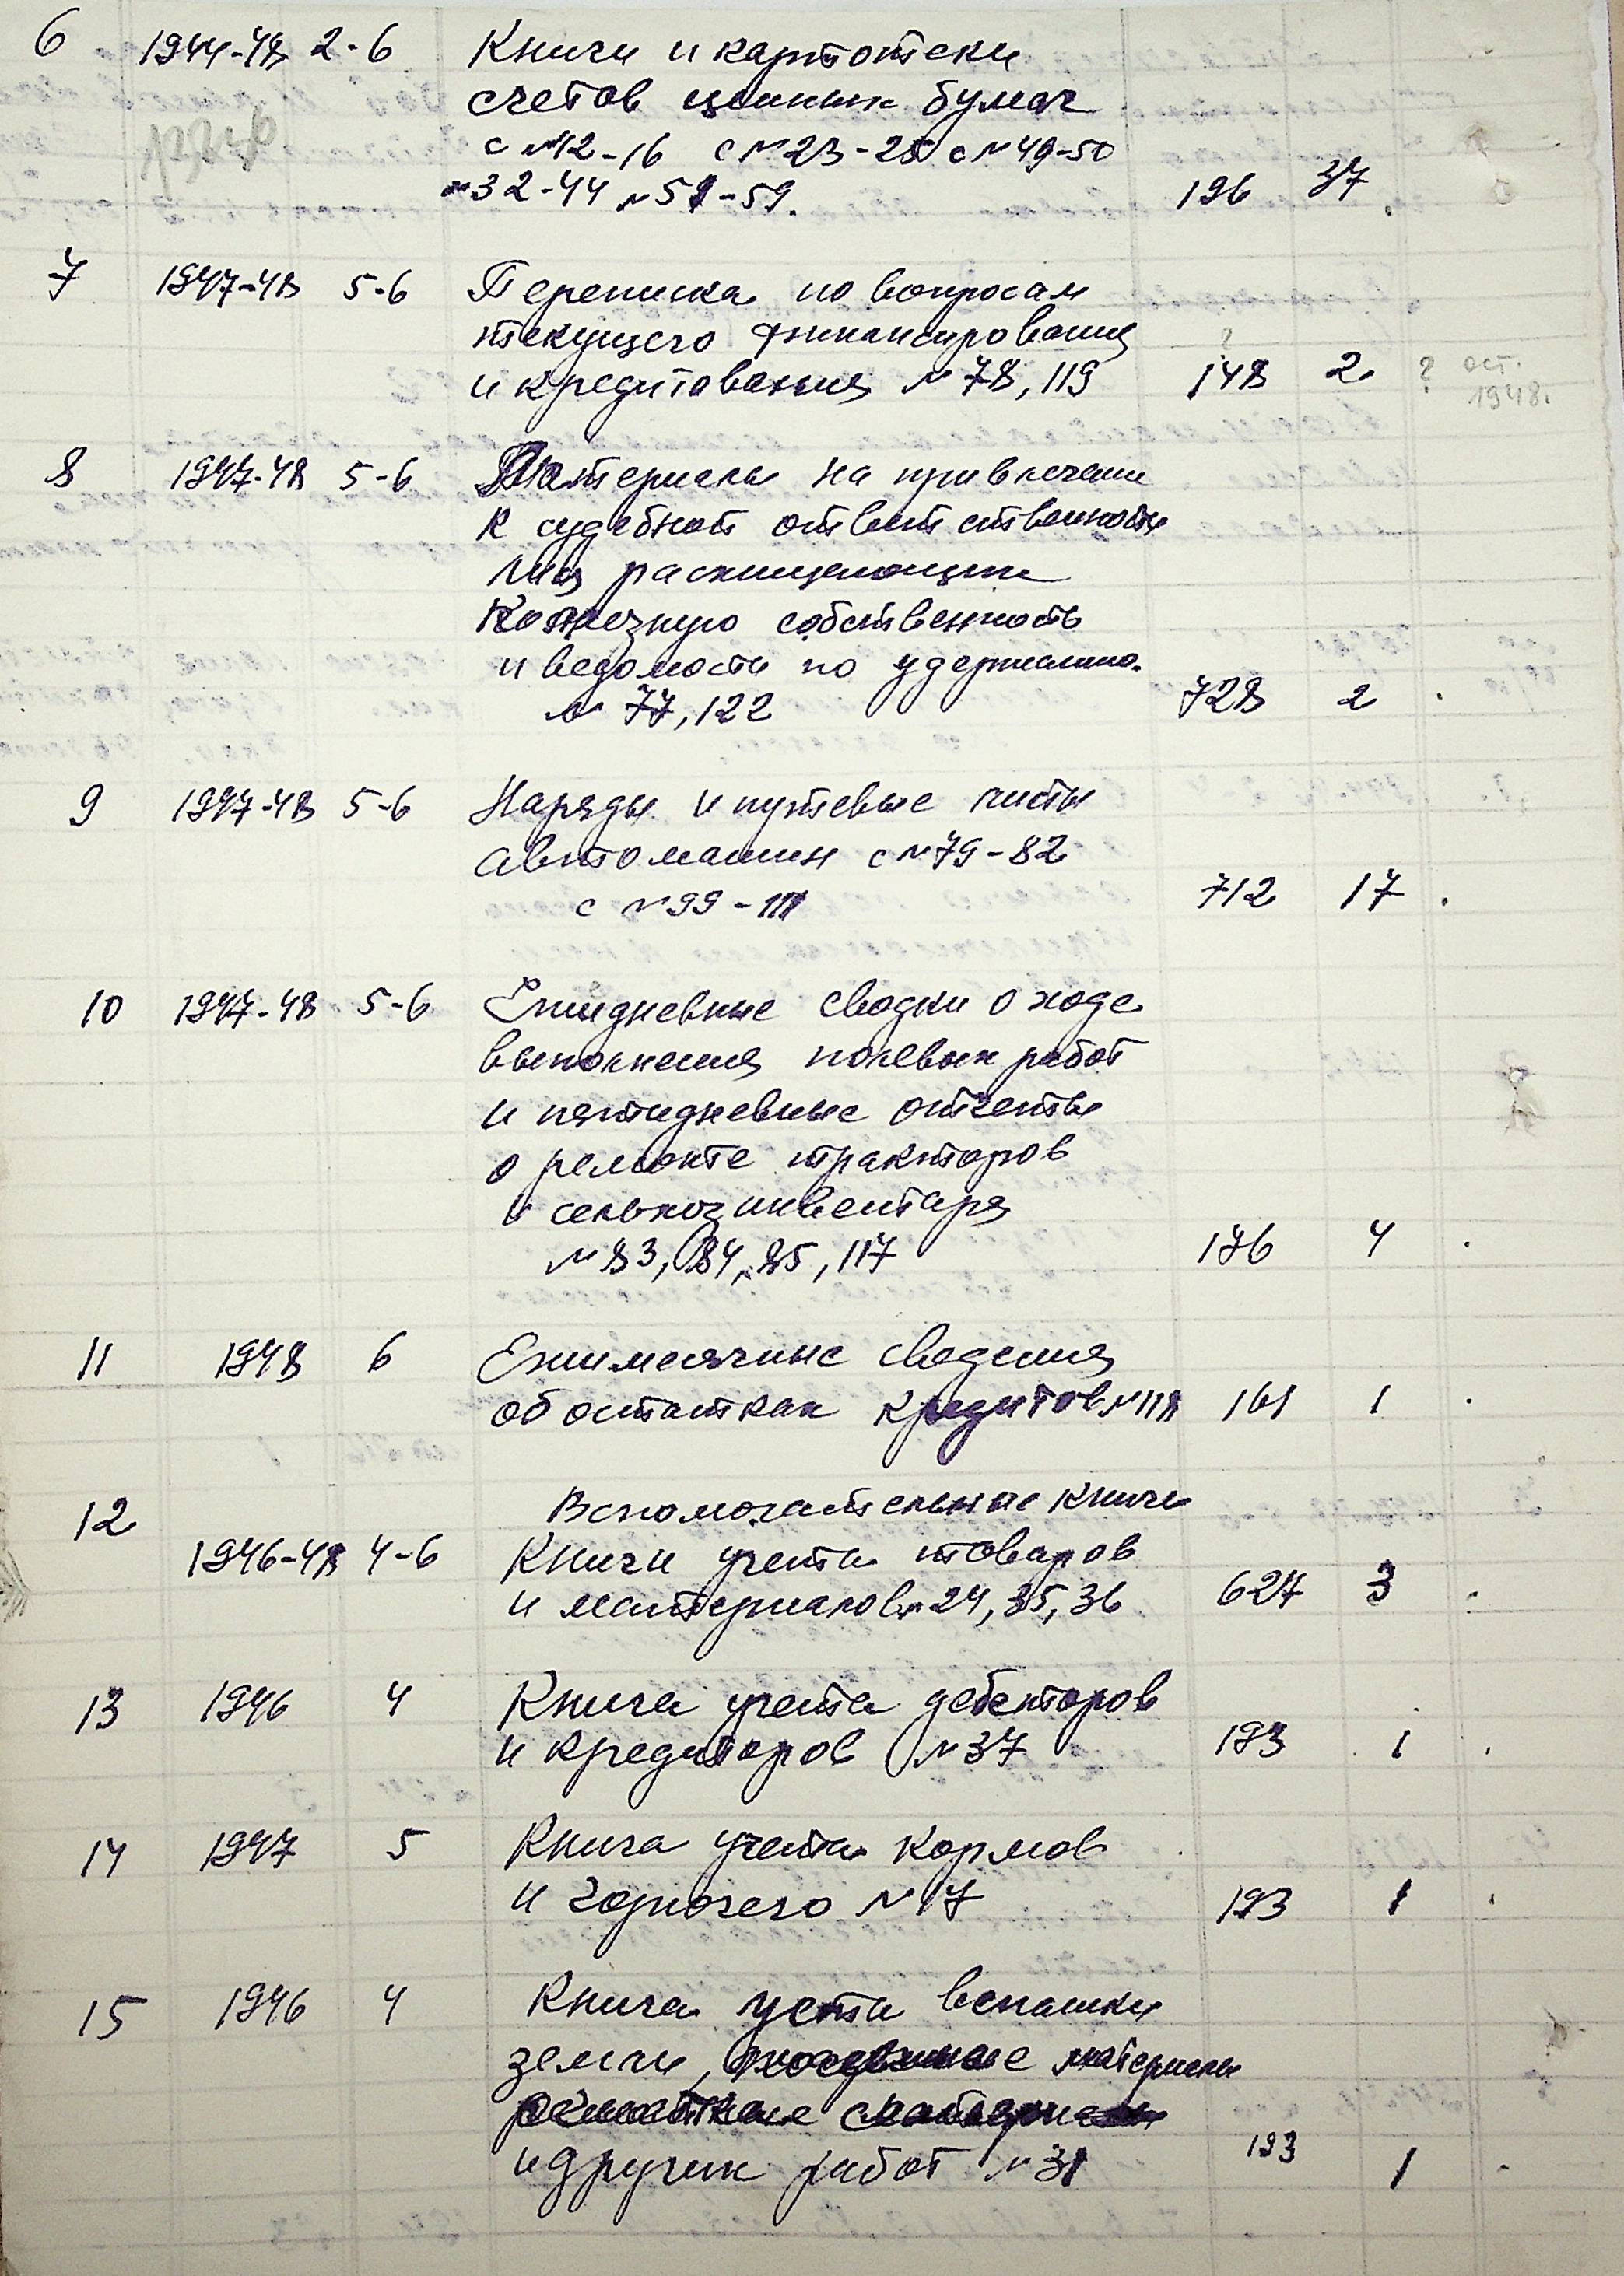 6 1944-48 2-6 Книги и картотеки
счетов ценных бумаг
с №12-16 с №23-28 с №49-50
№32-44 №51-59. 196 37.
7 1947-48 5-6 Переписка по вопросам
текущего финансирования ?
и кредитования №78, 119 148 2. ? ост.
1948.
8 1947-48 5-6 Материалы на привлечение
к судебной ответственности
лиц расхищающих
колхозную собственность
и ведомости по удержанию.
№ 77, 122 728 2 .
9 1947-48 5-6 Наряды и путевые листы
автомашин с №79-82
с №99-111 712 17 .
10 1947-48 5-6 Ежидневные сводки о ходе
выполнения полевых работ
и пятидневные отчеты
о ремонте тракторов
и сельхозинвентаря
№83, 84, 85, 117 176 4 .
11 1948 6 Ежимесячные сведения
об остатках кредитов №118 161 1 .
12 Вспомогательные книги
1946-48 4-6 Книги учета товаров
и материалов №24, 35, 36 627 3 .
13 1946 4 Книга учета дебекторов
и кредиторов №37 193 1 .
14 1947 5 Книга учета кормов
и горючего №17 193 1 .
15 1946 4 Книга учета вспашки
земли, материалы
и других работ №31 193 1 .